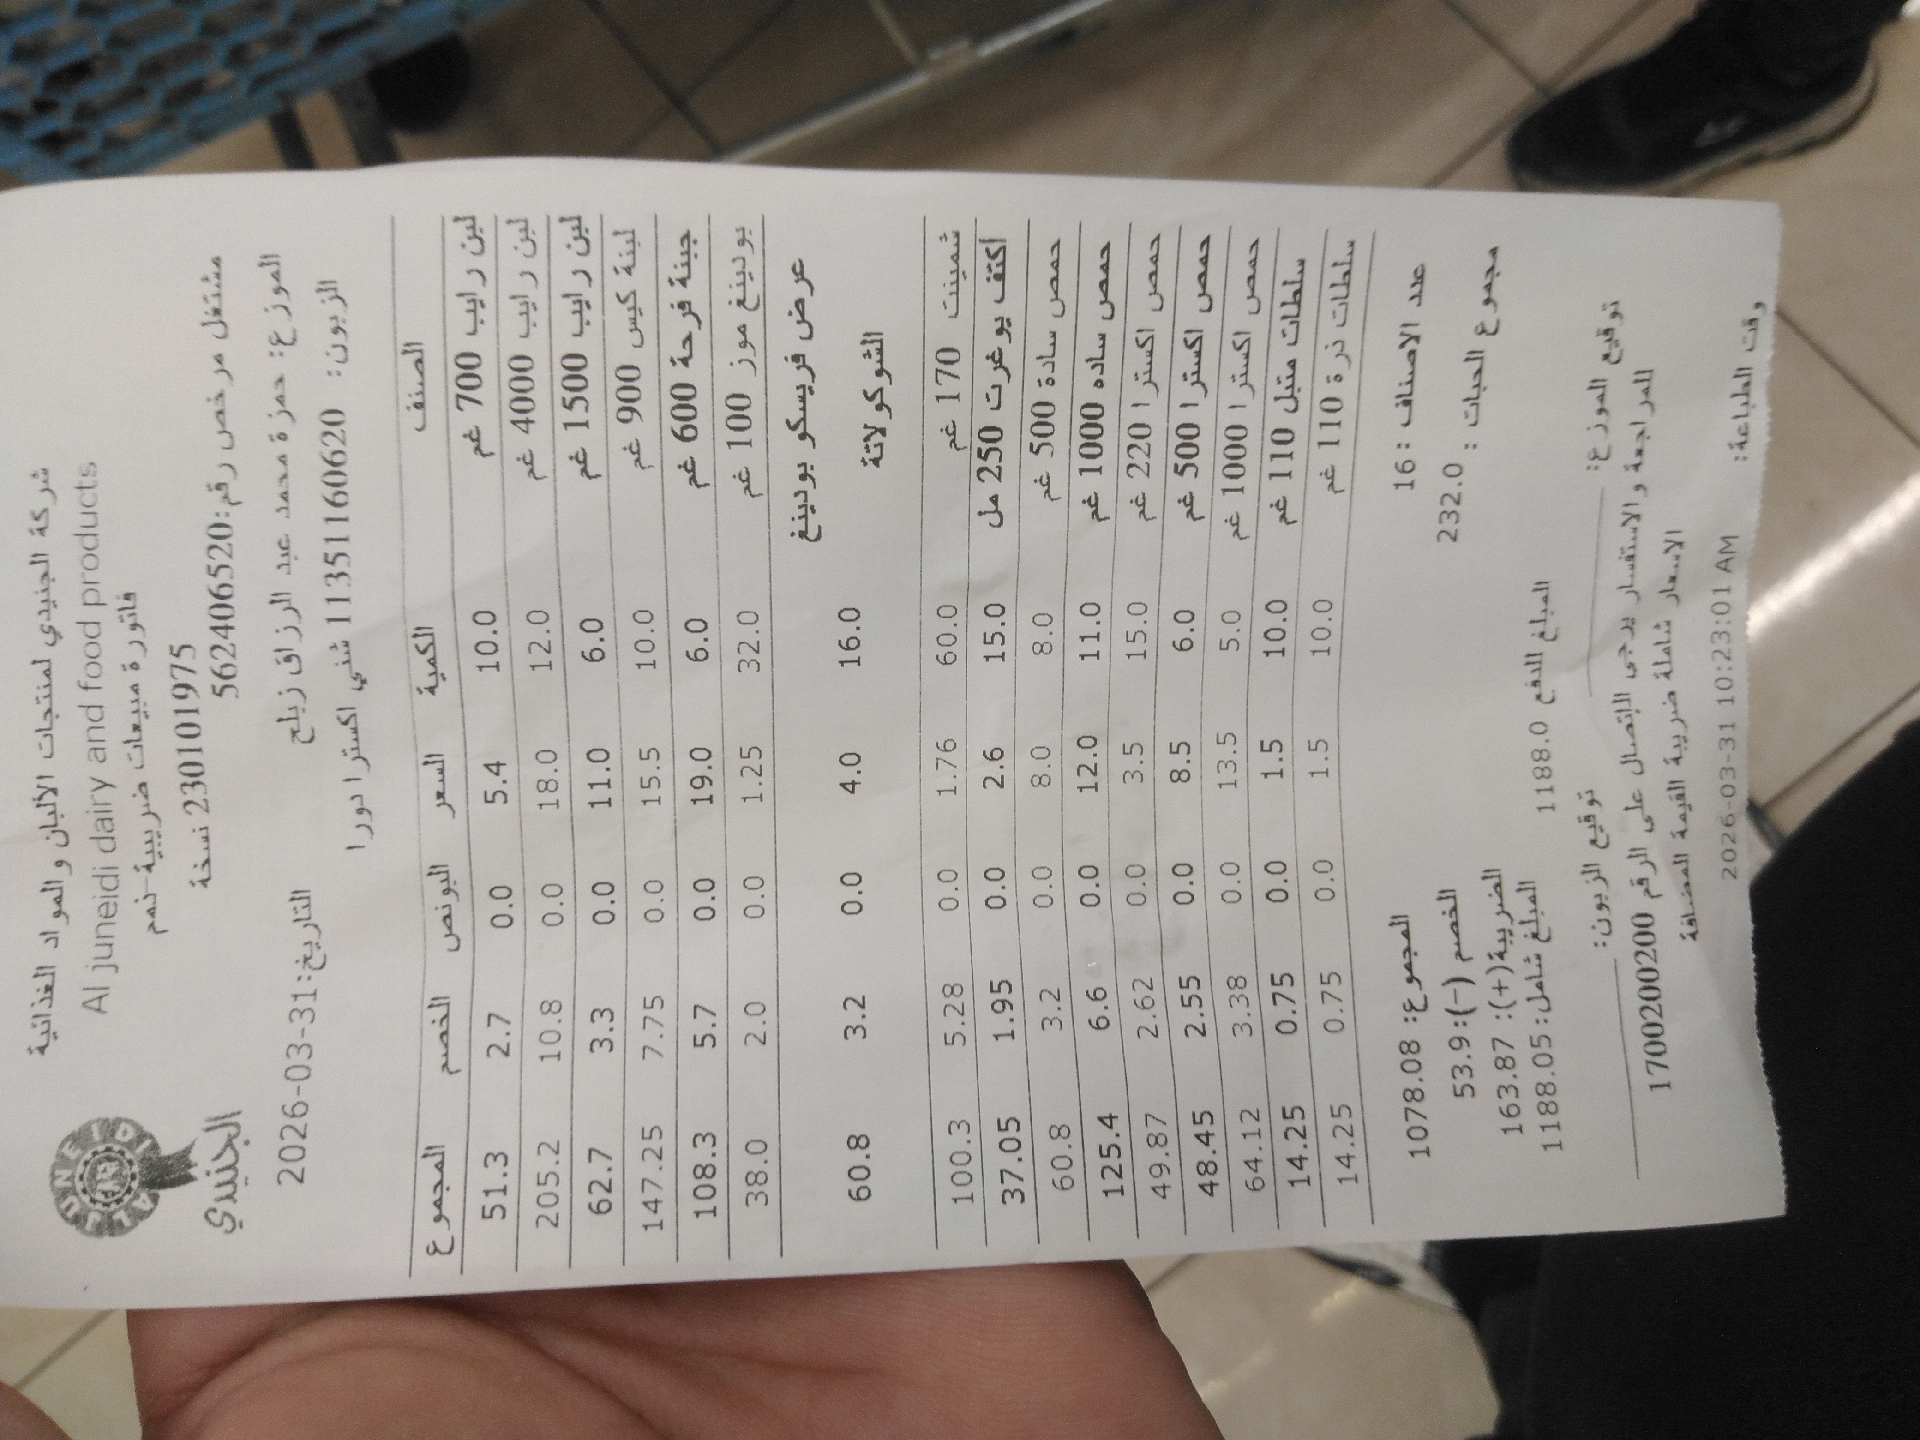 شركة الجنيدي لمنتجات الألبان والمواد الغذائية
Al juneidi dairy and food products
فاتورة مبيعات ضريبية-نهم
2301101975 نسخة
مشتغل مرخص رقم:562406520
AL JUNEIDI
الجنيدي
الموزع: حمزة محمد عبد الرزاق زبلح
التاريخ:2026-03-31
الزبون: 11135116 0620 شني اكسترا دورا
الصنف الكمية السعر البونص الخصم المجموع
لبن رايب 700 غم 10.0 5.4 0.0 2.7 51.3
لبن رايب 4000 غم 12.0 18.0 0.0 10.8 205.2
لبن رايب 1500 غم 6.0 11.0 0.0 3.3 62.7
لبنة كيس 900 غم 10.0 15.5 0.0 7.75 147.25
جبنة فرحة 600 غم 6.0 19.0 0.0 5.7 108.3
بودينغ موز 100 غم 32.0 1.25 0.0 2.0 38.0
عرض فريسكو بودينغ
الشوكولاتة 16.0 4.0 0.0 3.2 60.8
شمينت 170 غم 60.0 1.76 0.0 5.28 100.3
أكتف يوغرت 250 مل 15.0 2.6 0.0 1.95 37.05
حمص سادة 500 غم 8.0 8.0 0.0 3.2 60.8
حمص ساده 1000 غم 11.0 12.0 0.0 6.6 125.4
حمص اكسترا 220 غم 15.0 3.5 0.0 2.62 49.87
حمص اكسترا 500 غم 6.0 8.5 0.0 2.55 48.45
حمص اكسترا 1000 غم 5.0 13.5 0.0 3.38 64.12
سلطات متبل 110 غم 10.0 1.5 0.0 0.75 14.25
سلطات ذرة 110 غم 10.0 1.5 0.0 0.75 14.25
عدد الاصناف : 16
المجموع: 1078.08
مجموع الحبات : 232.0
الخصم (-): 53.9
الضريبة(+): 163.87
المبلغ الدفع 1188.0
المبلغ شامل: 1188.05
توقيع الموزع:
توقيع الزبون:
للمراجعة والاستفسار يرجى الاتصال على الرقم 1700200200
الاسعار شاملة ضريبة القيمة المضافة
وقت الطباعة: 2026-03-31 10:23:01 AM